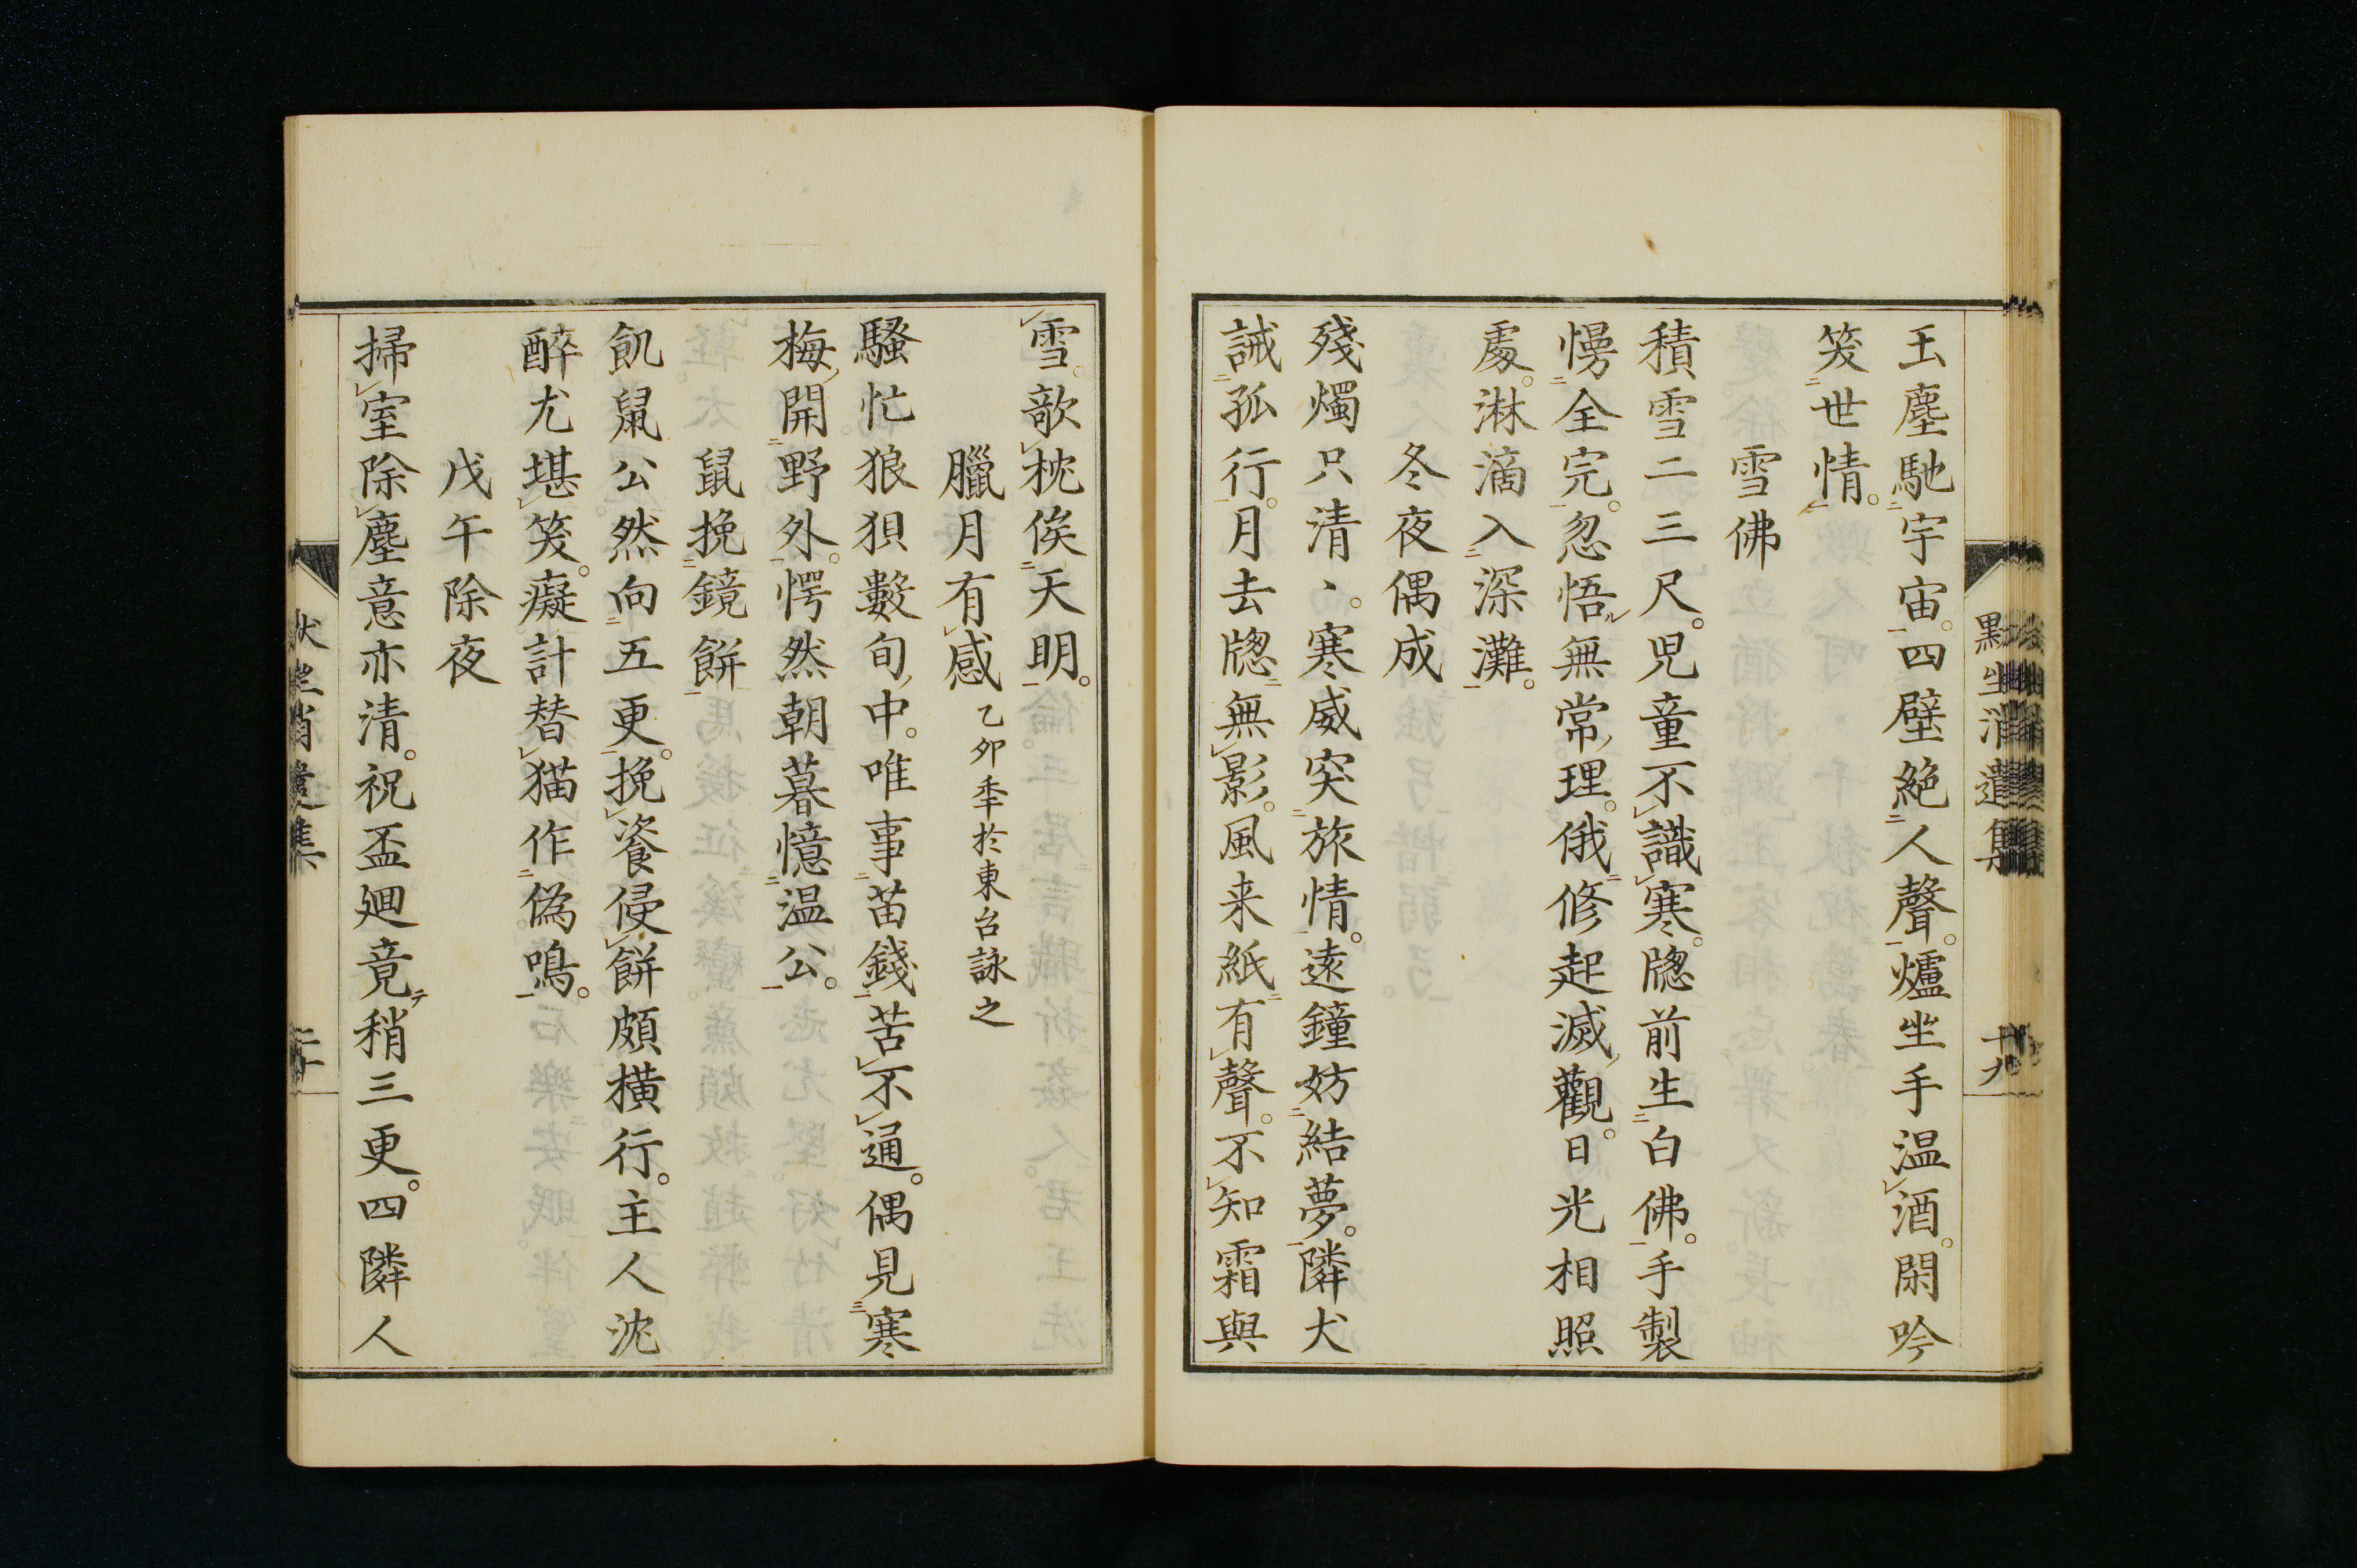 玉塵馳宇宙。四壁絶人聲。爐坐手温酒。閑吟
笑世情。
雪佛
積雪二三尺。児童不識寒。牎前生白佛。手製
慢全完。忽悟ル無常理。俄修起滅觀。日光相照
處。淋滴入深灘。
冬夜偶成
殘燭只清〻。寒威突旅情。遠鐘妨結夢。隣犬
誡孤行。月去牎無影。風来紙有聲。不知霜與
雪。欹枕俟天明。
臘月有感 乙夘秊於東台詠之
騷忙狼狽數旬中。唯事苗錢苦不通。偶見寒
梅開野外。愕然朝暮憶温公。
鼠挽鏡餅
飢鼠公然向五更。挽餈侵餅頗横行。主人沈
醉尤堪笑。癡計替猫作偽鳴。
戊午除夜
掃室除塵意亦清。祝盃廻竟テ稍三更。四隣人
點坐消遣集
十九
消遣集
二十